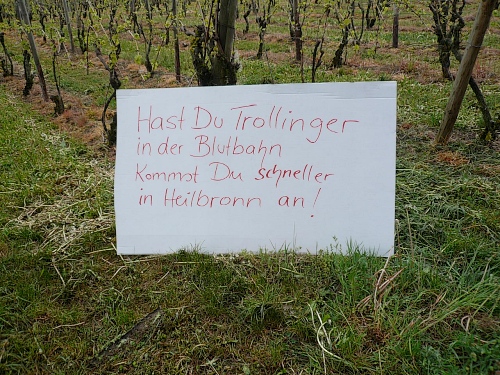 Hast Du Trollinger
in der Blutbahn
Kommst Du schneller
in Heilbronn an!